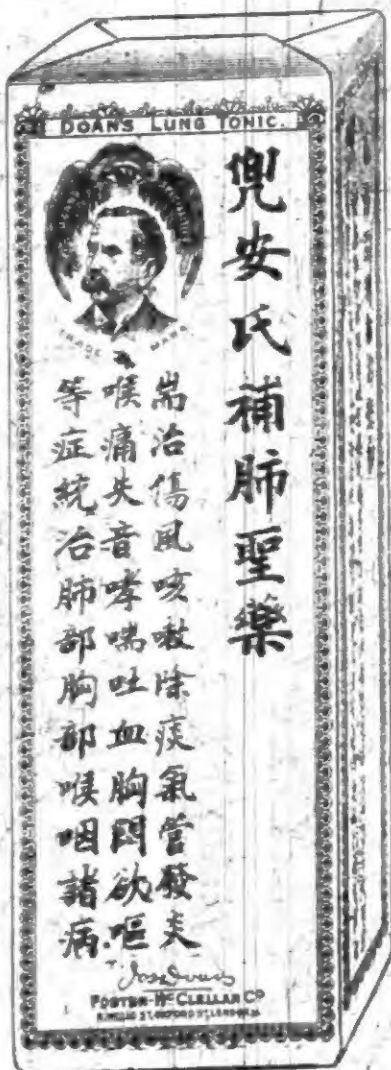 DOAN'S LUNG TONIC.
TRADE MARK
兜安氏補肺聖藥
耑治傷風咳嗽除痰氣管發炎
喉痛失音哮喘吐血胸悶欲嘔
等症統治肺部胸部喉咽諸病
FOSTER-McCLELLAN CO